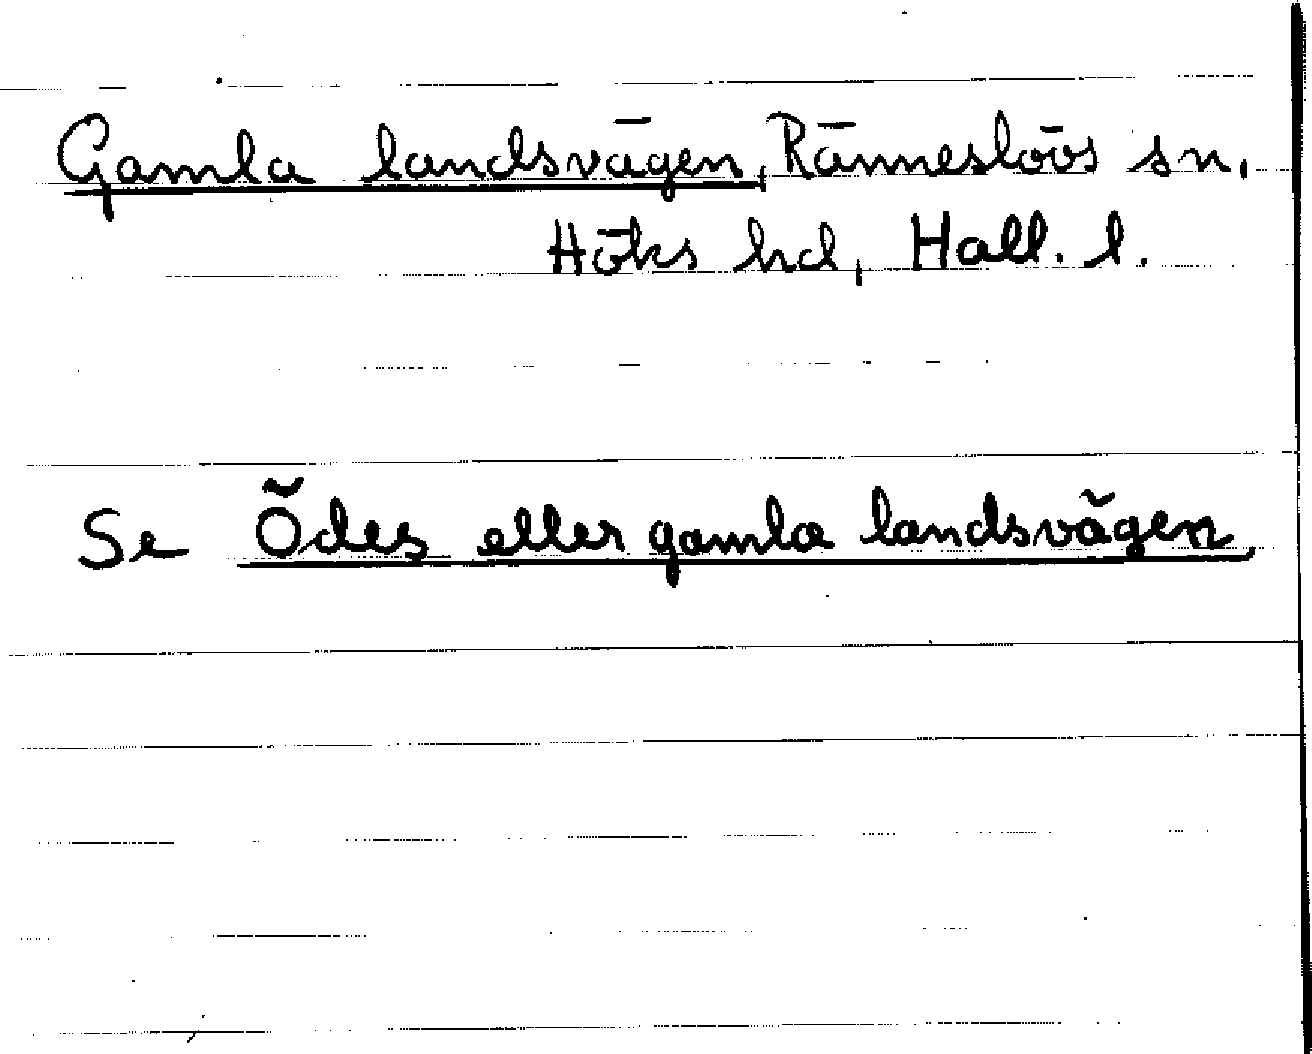 Gamla landsvägen, Ränneslövs sn,
Höks hd, Hall. l.
Se Ödes eller gamla landsvägen